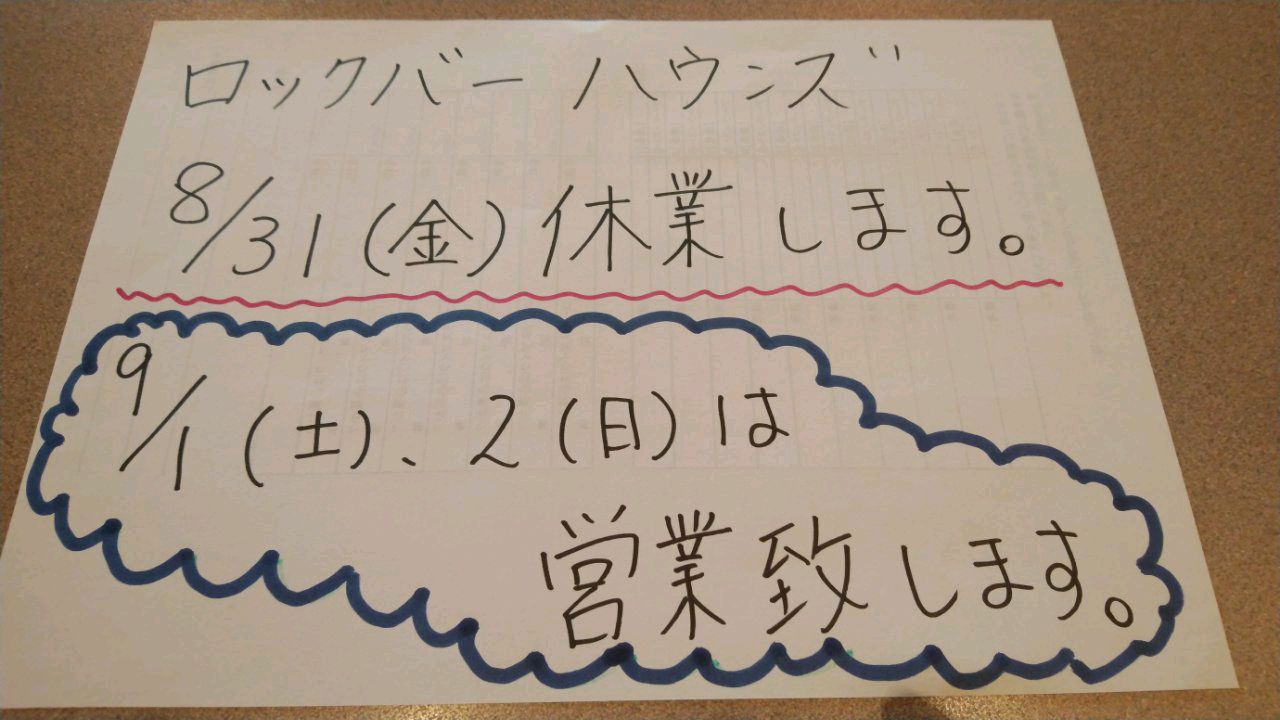 ロックバー ハウンズ
8/31(金)休業します。
9/1(土)、2(日)は
営業致します。